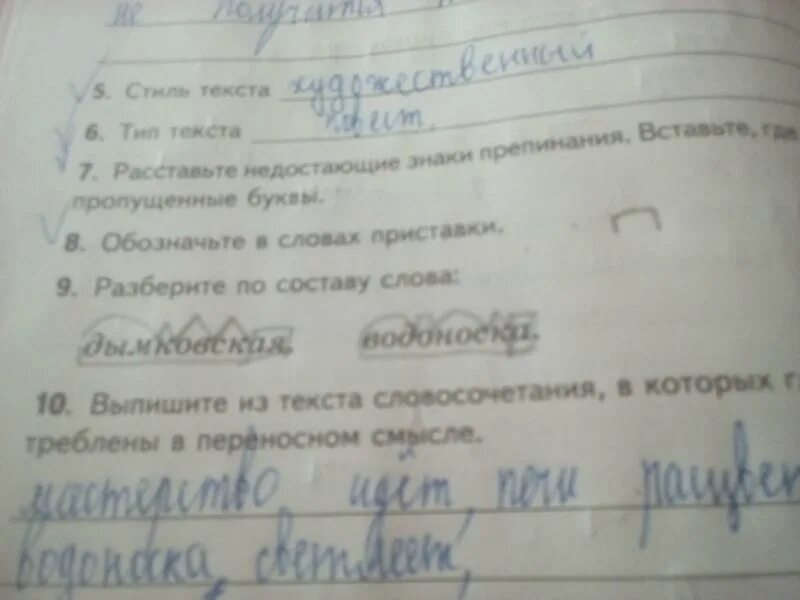 не получатся
5. Стиль текста художественный
6. Тип текста повест.
7. Расставьте недостающие знаки препинания. Вставьте, где
пропущенные буквы.
8. Обозначьте в словах приставки.
9. Разберите по составу слова:
дымковская, водоноска.
10. Выпишите из текста словосочетания, в которых г
треблены в переносном смысле.
мастерство, идёт, печи расцвет
водоноска, светлеет,